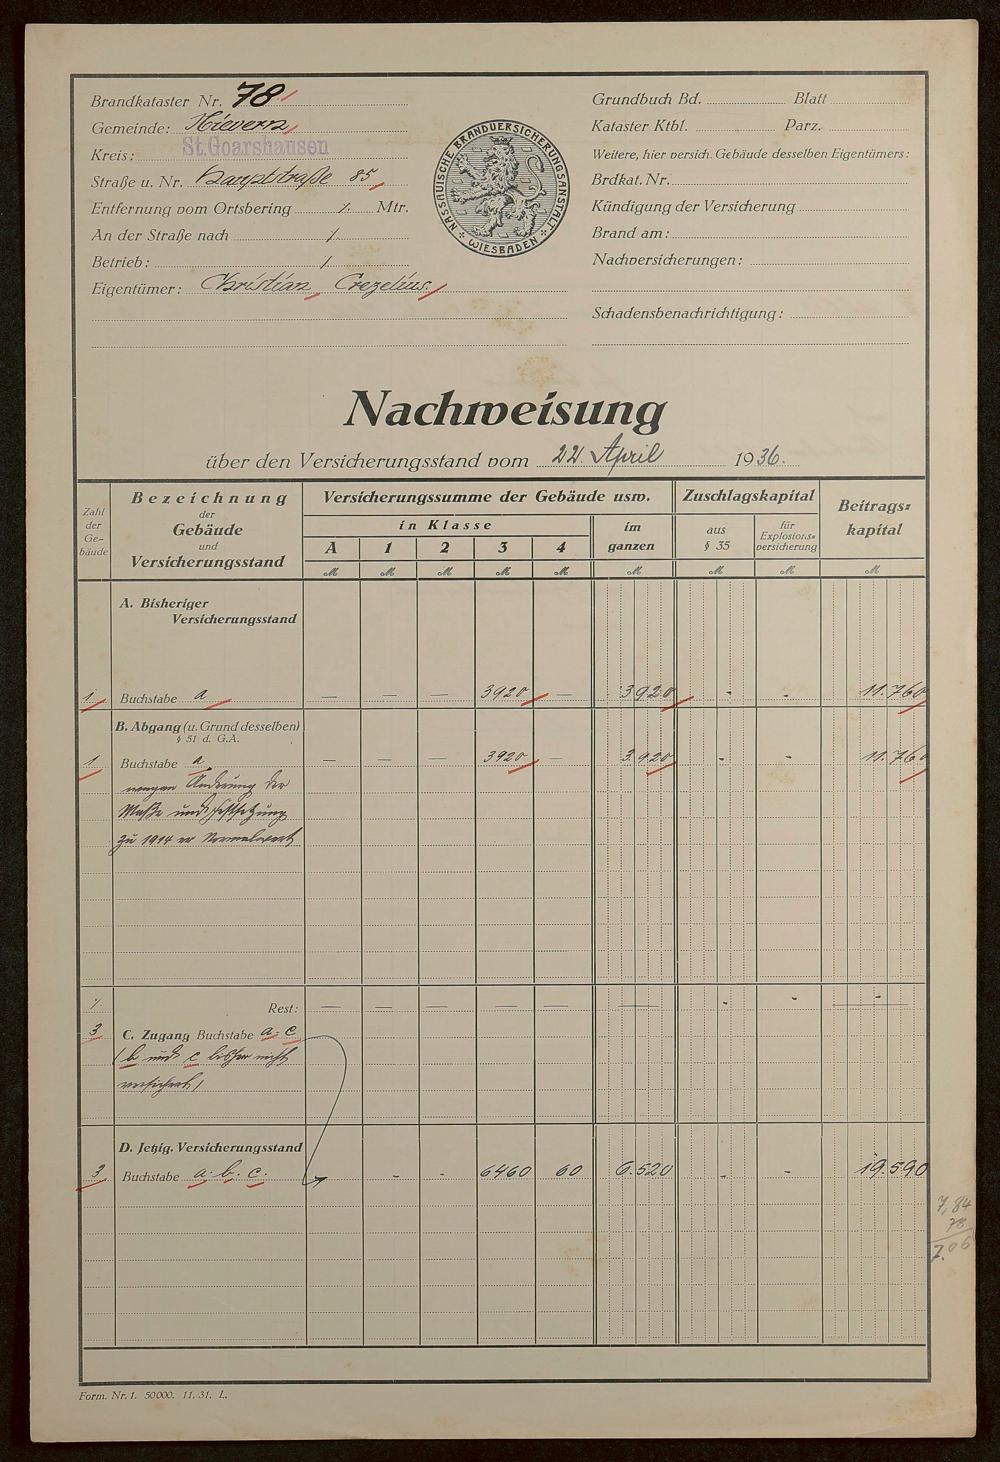 Brandkataster Nr. 78
Gemeinde: Nievern
Kreis: St. Goarshausen
Straße u. Nr. Hauptstraße 85
Entfernung vom Ortsbering ⁒ Mtr.
An der Straße nach ⁒
Betrieb: ⁒
Eigentümer: Christian Crezelius
NASSAUISCHE BRANDVERSICHERUNGSANSTALT
WIESBADEN
Grundbuch Bd. Blatt
Kataster Ktbl. Parz.
Weitere, hier versich. Gebäude desselben Eigentümers:
Brdkat. Nr.
Kündigung der Versicherung
Brand am:
Nachversicherungen:
Schadensbenachrichtigung:
Nachweisung
über den Versicherungsstand vom 22. April 1936.
Zahl der Ge-bäude
Bezeichnung der Gebäude und Versicherungsstand
Versicherungssumme der Gebäude usw.
in Klasse
A 1 2 3 4
im ganzen
Zuschlagskapital
aus § 35
für Explosions=versicherung
Beitrags=kapital
M M M M M M M M M
A. Bisheriger
Versicherungsstand
1 Buchstabe a — — — 3920 — 3920 - - 11.760
B. Abgang (u. Grund desselben)
§ 51 d. G.A.
1 Buchstabe a — — — 3920 — 3.920 - - 11.760
wegen Änderung der
Maße und Festsetzung
zu 1914 er Normalwert
⁒ Rest: — — — — — — - - -
3 C. Zugang Buchstabe a - c
(b und c bisher nicht
versichert)
D. Jetzig. Versicherungsstand
3 Buchstabe a. b. c. - - 6460 60 6.520 - - 19.590
7,84
78
7.06
Form. Nr. 1. 50000. 11. 31. L.